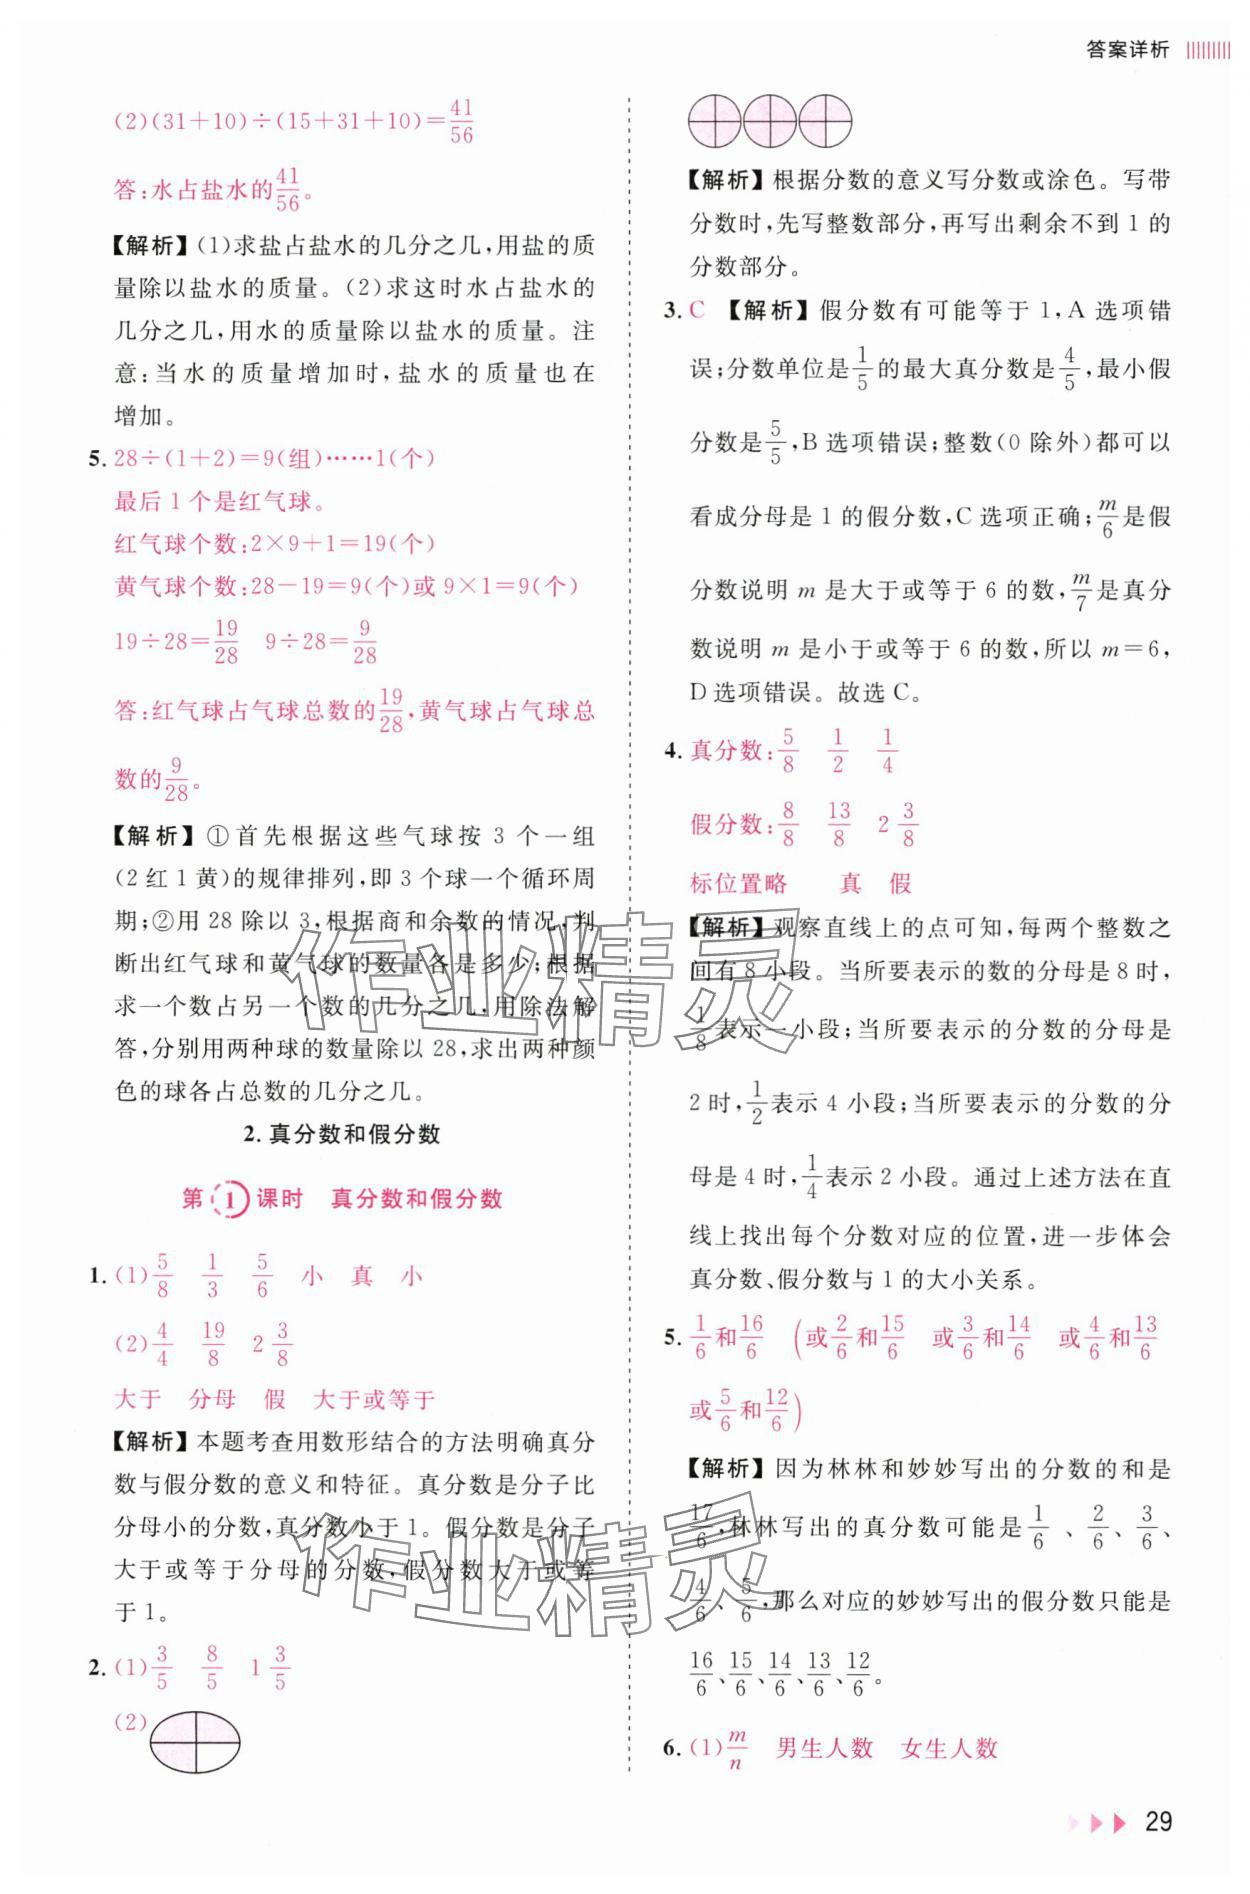 答案详析
(2)(31+10)÷(15+31+10)=41/56
答:水占盐水的41/56。
【解析】(1)求盐占盐水的几分之几,用盐的质
量除以盐水的质量。(2)求这时水占盐水的
几分之几,用水的质量除以盐水的质量。注
意:当水的质量增加时,盐水的质量也在
增加。
5. 28÷(1+2)=9(组)……1(个)
最后1个是红气球。
红气球个数:2×9+1=19(个)
黄气球个数:28-19=9(个)或9×1=9(个)
19÷28=19/28 9÷28=9/28
答:红气球占气球总数的19/28,黄气球占气球总
数的9/28。
【解析】①首先根据这些气球按3个一组
(2红1黄)的规律排列,即3个球一个循环周
期;②用28除以3,根据商和余数的情况,判
断出红气球和黄气球的数量各是多少;根据
求一个数占另一个数的几分之几,用除法解
答,分别用两种球的数量除以28,求出两种颜
色的球各占总数的几分之几。
2. 真分数和假分数
第1课时 真分数和假分数
1. (1)5/8 1/3 5/6 小 真 小
(2)4/4 19/8 2 3/8
大于 分母 假 大于或等于
【解析】本题考查用数形结合的方法明确真分
数与假分数的意义和特征。真分数是分子比
分母小的分数,真分数小于1。假分数是分子
大于或等于分母的分数,假分数大于或等
于1。
2. (1)3/5 8/5 1 3/5
(2)
【解析】根据分数的意义写分数或涂色。写带
分数时,先写整数部分,再写出剩余不到1的
分数部分。
3. C 【解析】假分数有可能等于1,A选项错
误;分数单位是1/5的最大真分数是4/5,最小假
分数是5/5,B选项错误;整数(0除外)都可以
看成分母是1的假分数,C选项正确;m/6是假
分数说明m是大于或等于6的数,m/7是真分
数说明m是小于或等于6的数,所以m=6,
D选项错误。故选C。
4. 真分数:5/8 1/2 1/4
假分数:8/8 13/8 2 3/8
标位置略 真 假
【解析】观察直线上的点可知,每两个整数之
间有8小段。当所要表示的数的分母是8时,
1/8表示一小段;当所要表示的分数的分母是
2时,1/2表示4小段;当所要表示的分数的分
母是4时,1/4表示2小段。通过上述方法在直
线上找出每个分数对应的位置,进一步体会
真分数、假分数与1的大小关系。
5. 1/6和16/6 (或2/6和15/6 或3/6和14/6 或4/6和13/6
或5/6和12/6)
【解析】因为林林和妙妙写出的分数的和是
17/6,林林写出的真分数可能是1/6、2/6、3/6、
4/6、5/6,那么对应的妙妙写出的假分数只能是
16/6、15/6、14/6、13/6、12/6。
6. (1)m/n 男生人数 女生人数
29
作业精灵
作业精灵